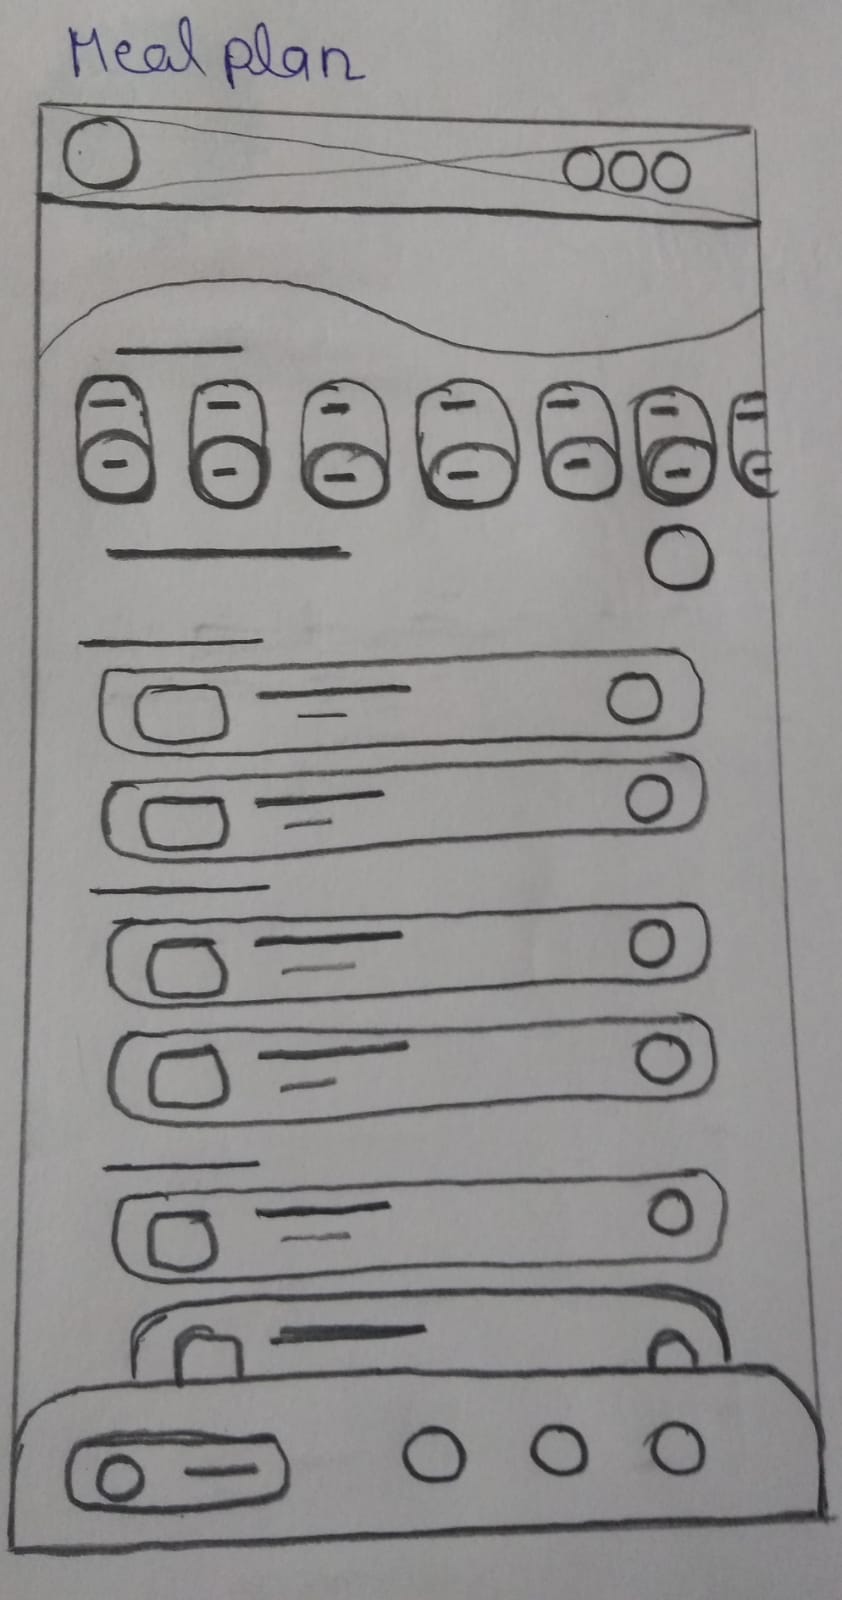 Meal plan